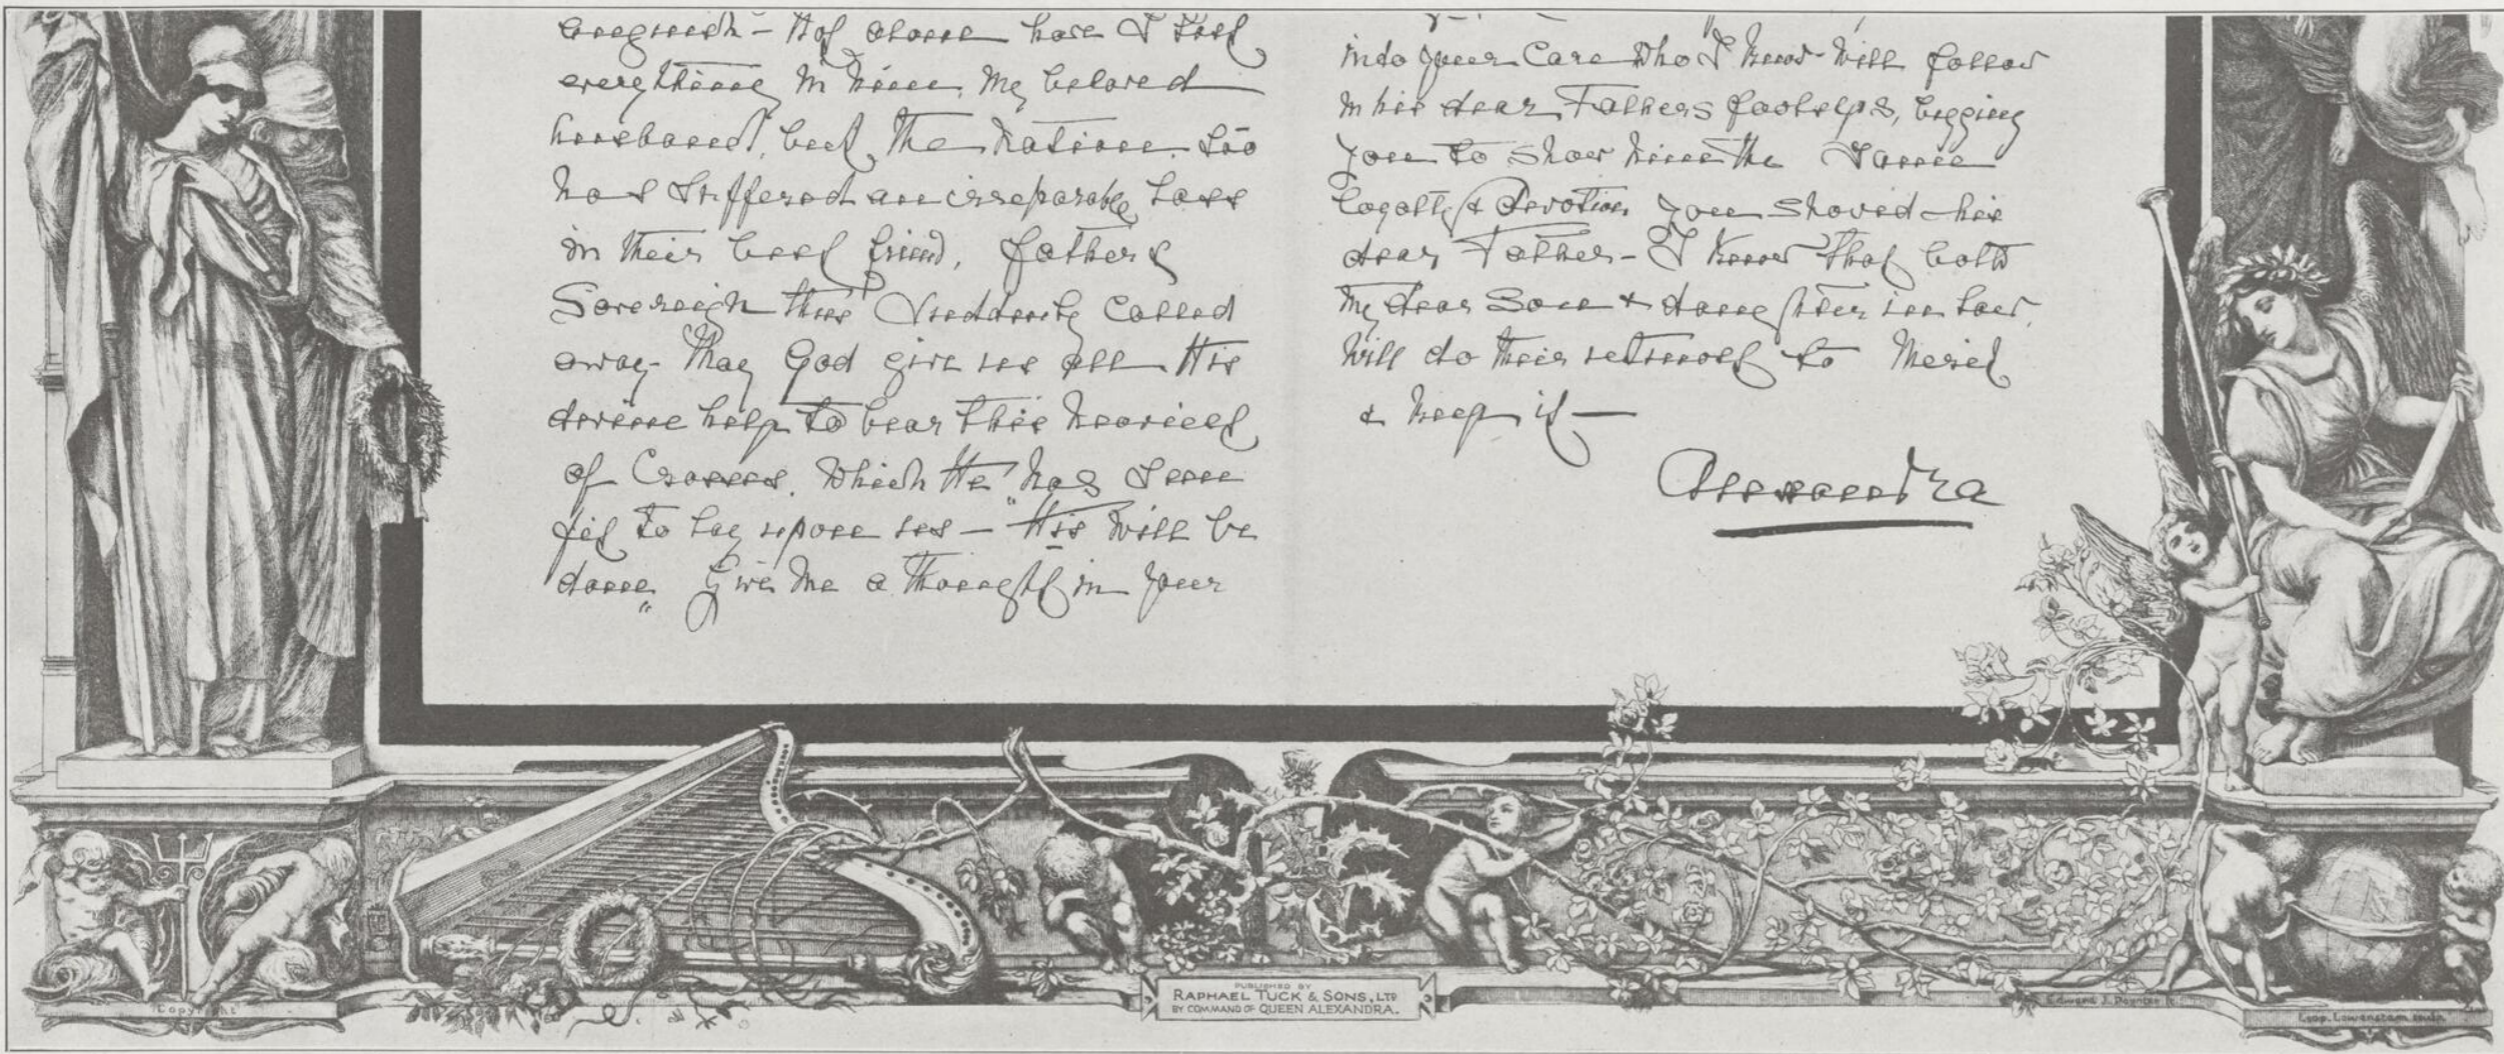 anguish – Not alone have I lost
everything in him, my beloved
husband, but, the nation, too
has suffered an irreparable loss
in their best friend, father &
Sovereign thus suddenly called
away – May God give us all His
divine help to bear this heaviest
of Crosses. Which He has seen
fit to lay upon us — "His will be
done" Give me a thought in your
into your Care who I know – will follow
in his dear Fathers footsteps, begging
you to show him the same
loyalty & devotion you showed his
dear Father – I know that both
my dear Son & daughter in law.
will do their utmost to merit
& keep it —
Alexandra
Copyright
PUBLISHED BY
RAPHAEL TUCK & SONS, LTD
BY COMMAND OF QUEEN ALEXANDRA.
Edward J. Poynter
Leop. Lowenstam sculp.